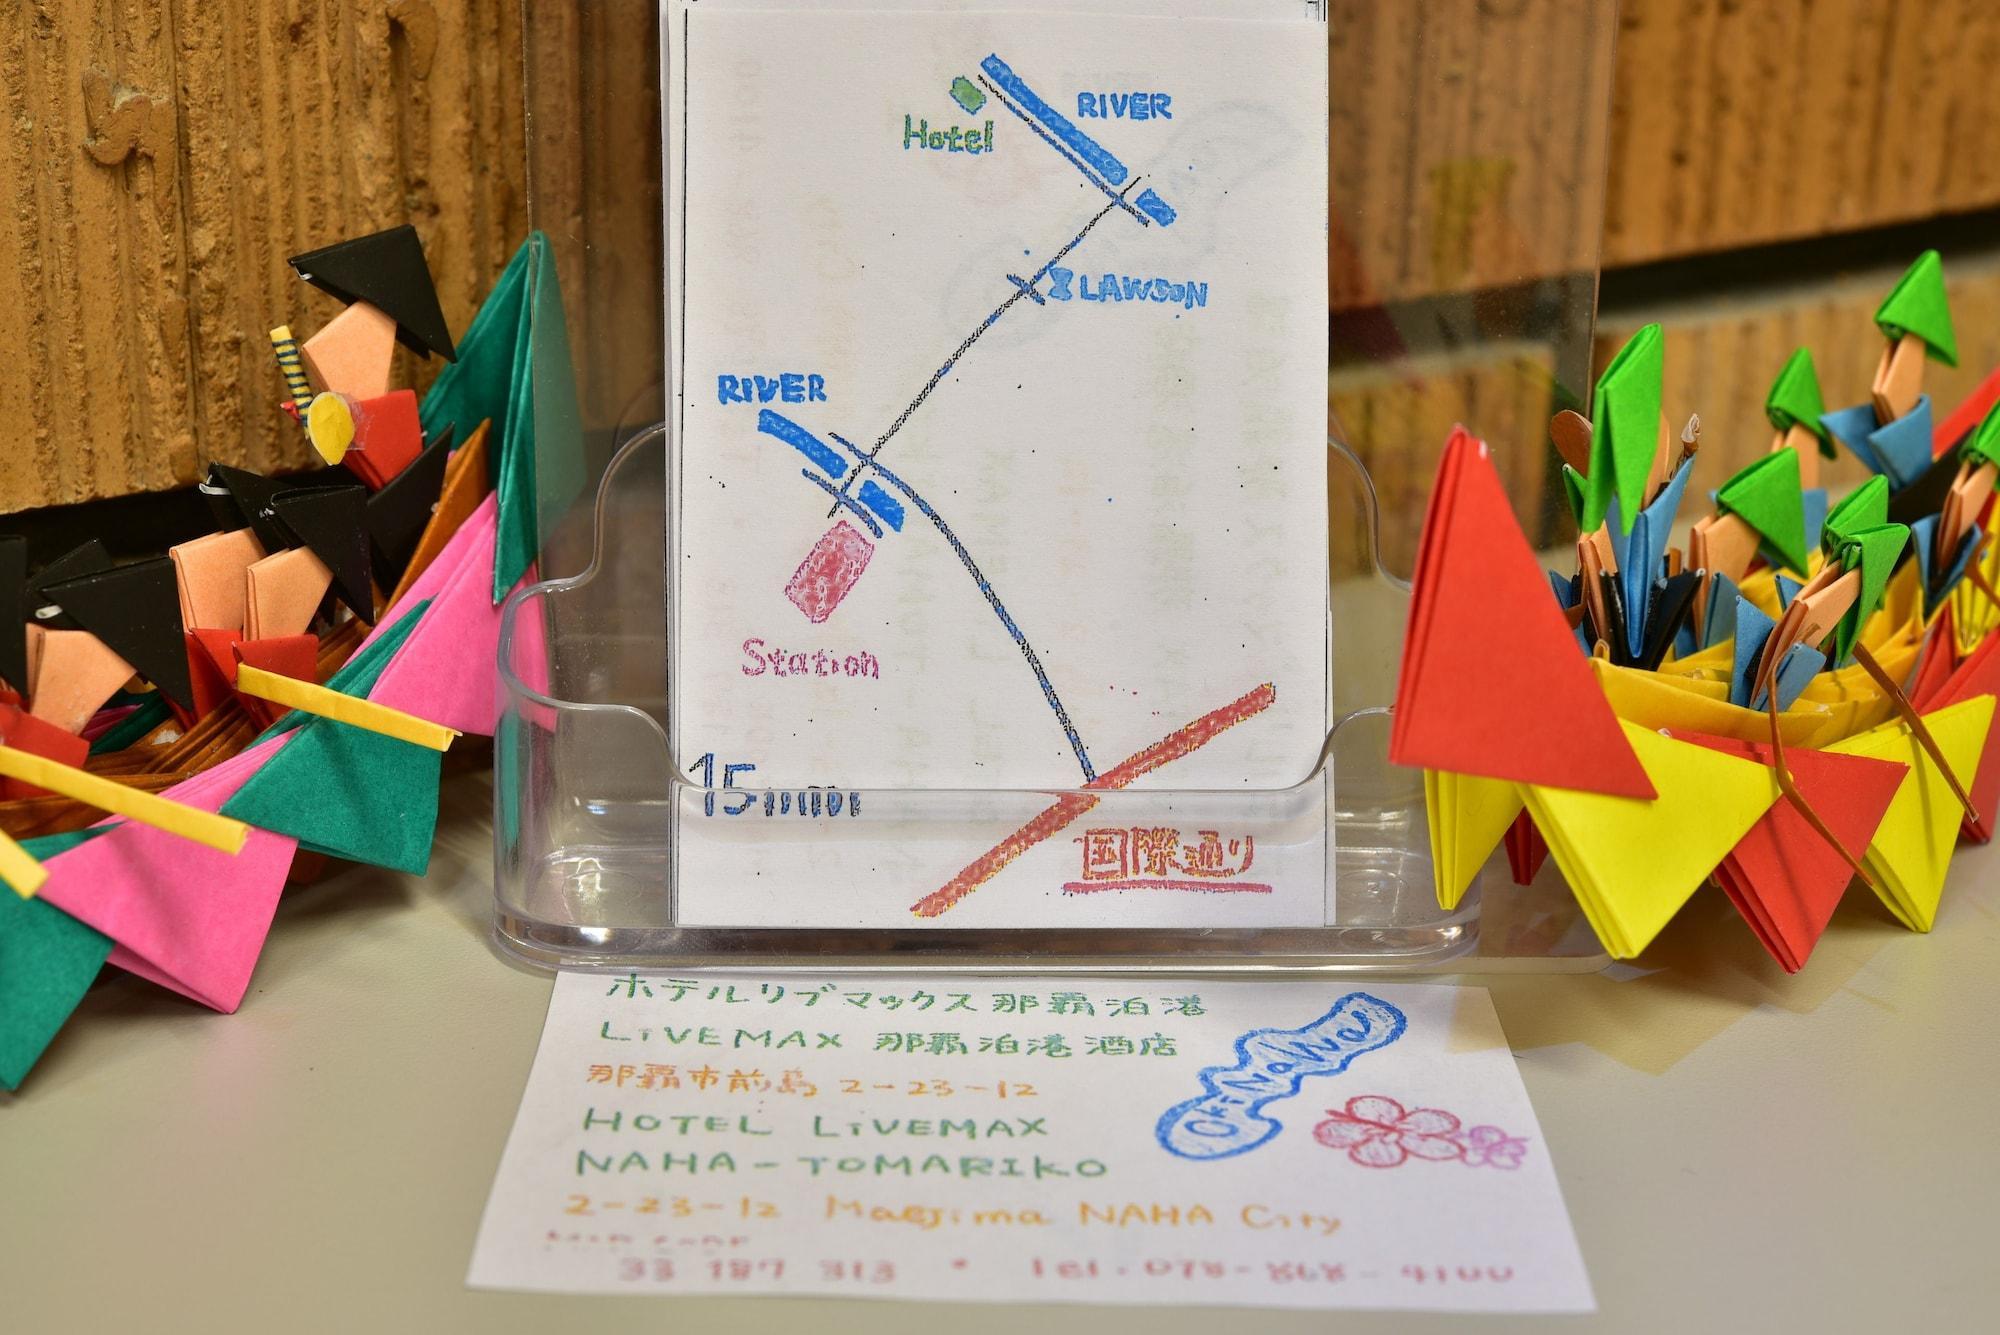 RIVER
Hotel
LAWSON
RIVER
Station
15min
国際通り
ホテルリブマックス那覇泊港
LiVEMAX 那覇泊港酒店
那覇市前島 2-23-12
HOTEL LiVEMAX
NAHA-TOMARIKO
2-23-12 Maejima NAHA City
OKiNaWa
33 187 313 * tel.